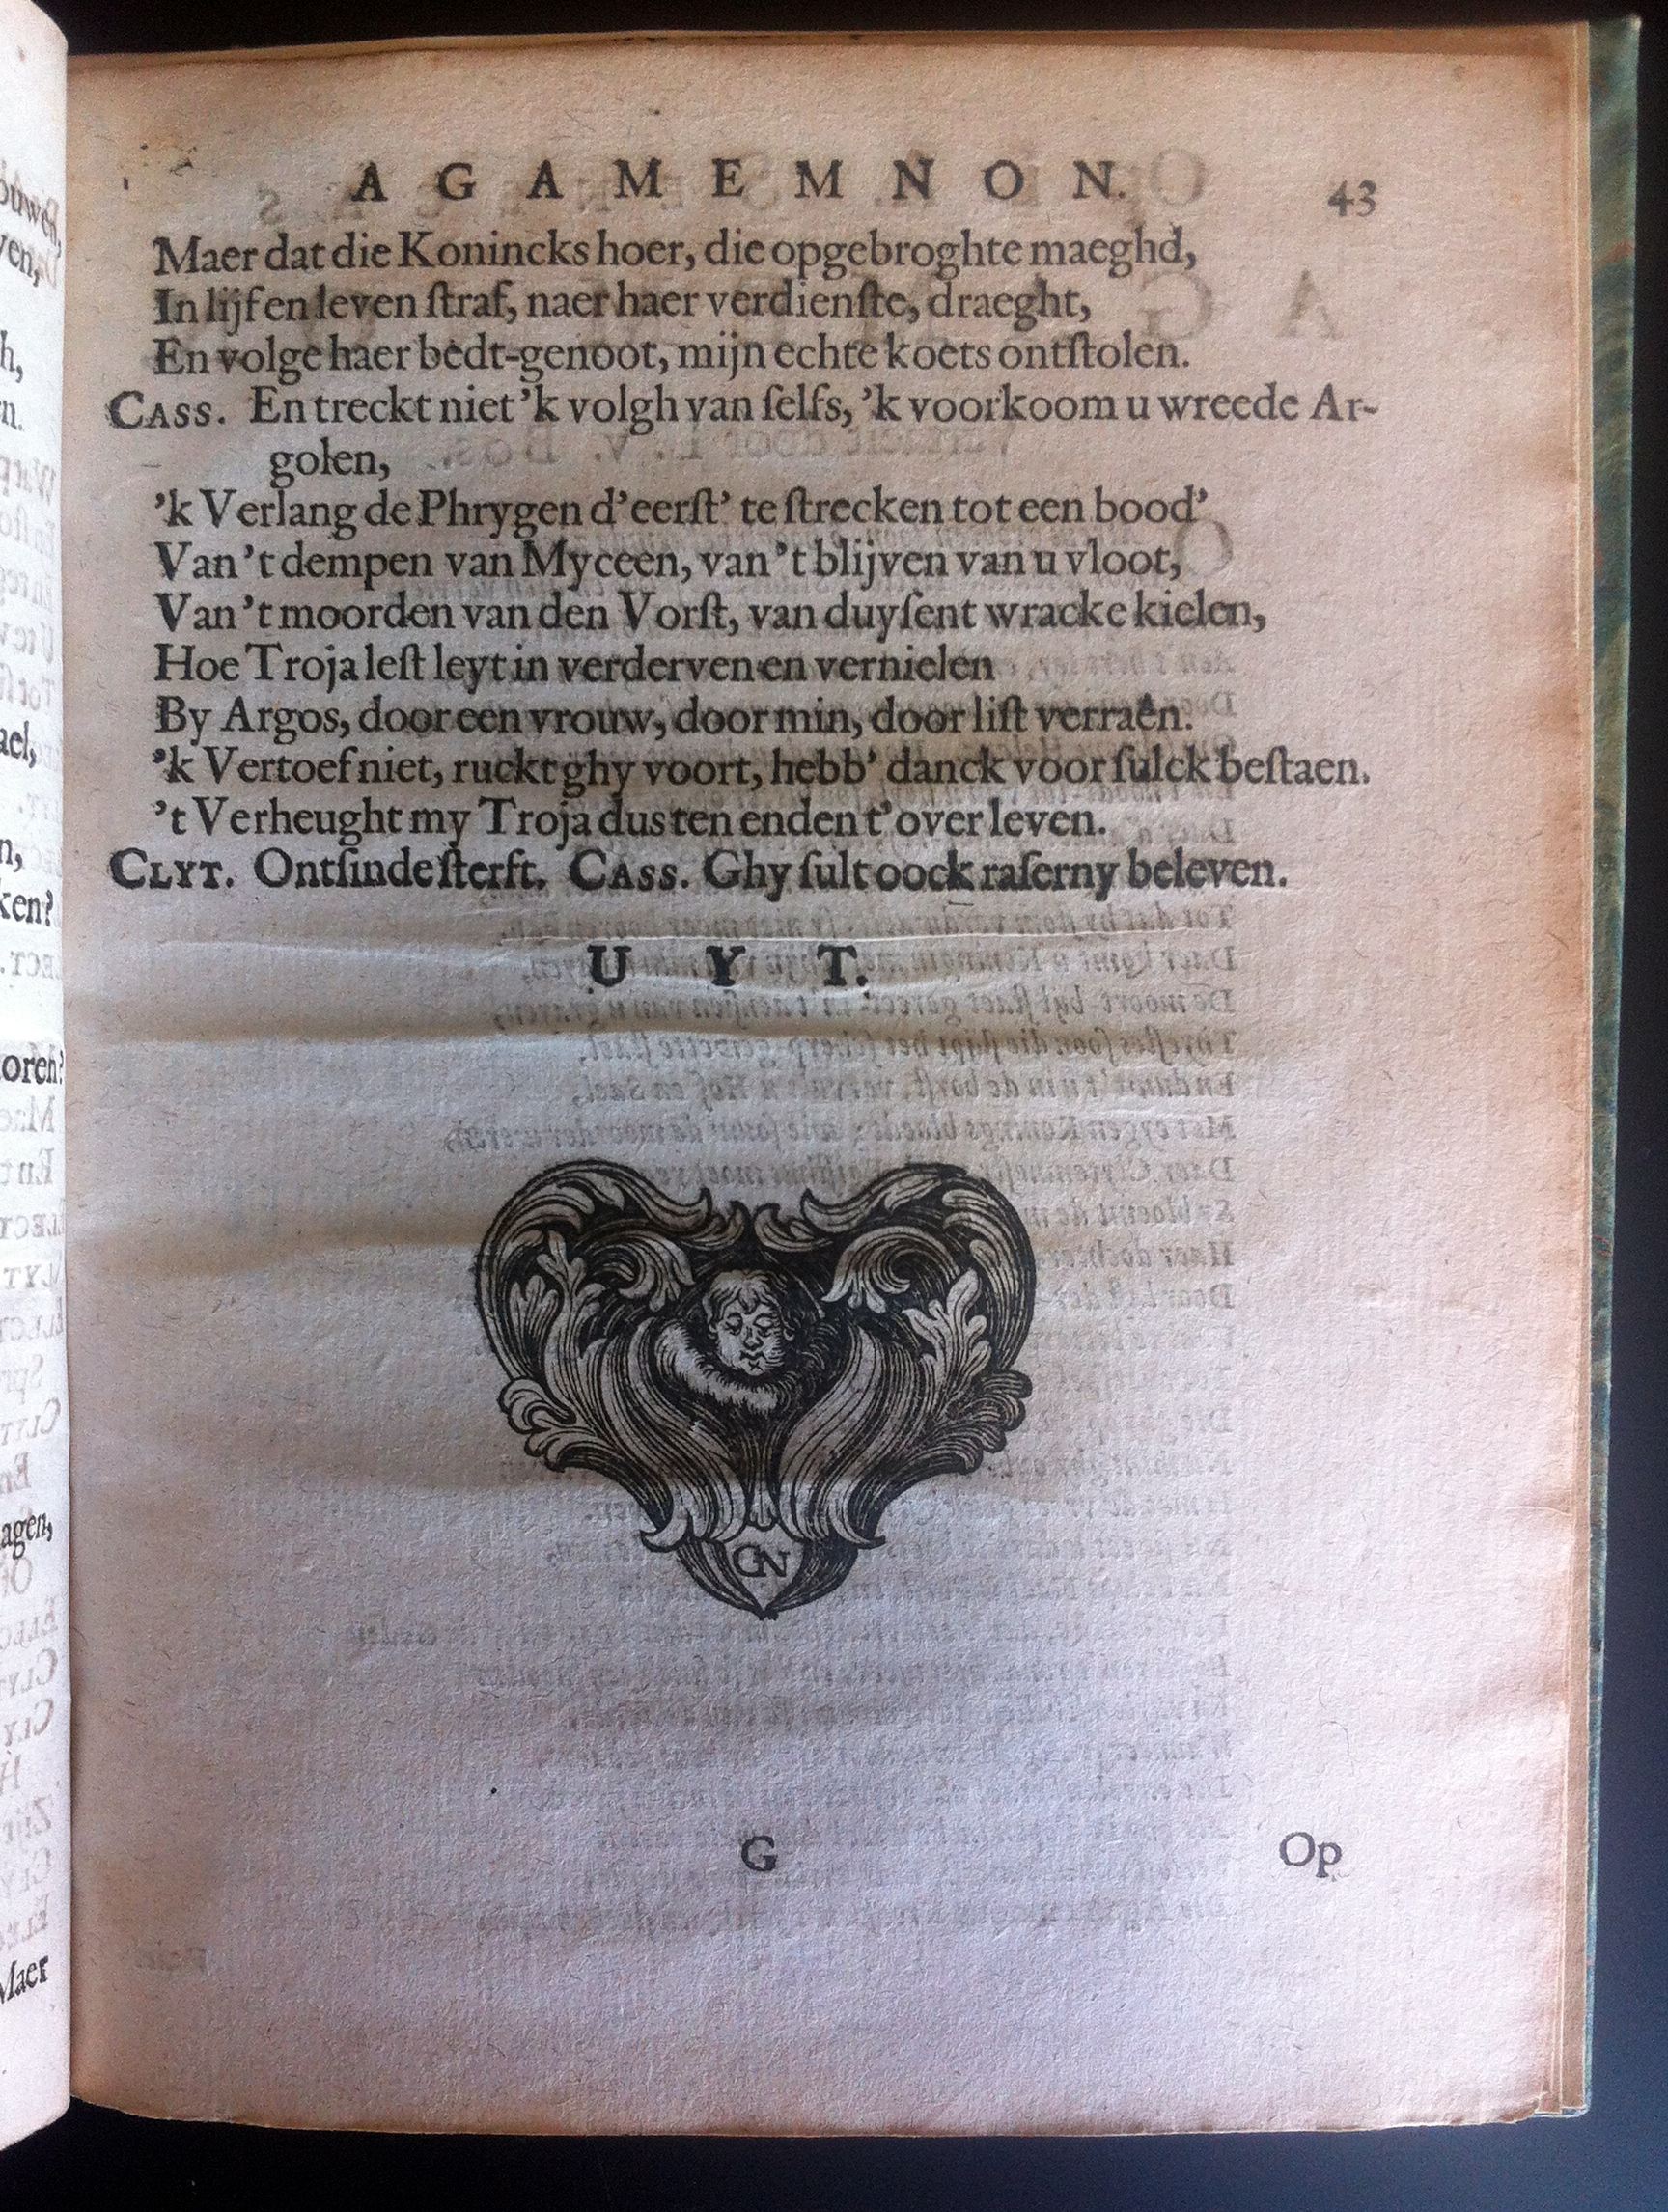 AGAMEMNON. 43
Maer dat die Konincks hoer, die opgebroghte maeghd,
In lijf en leven ſtraf, naer haer verdienſte, draeght,
En volge haer bedt-genoot, mijn echte koets ontſtolen.
CASS. En treckt niet 'k volgh van ſelfs, 'k voorkoom u wreede Ar-
golen,
'k Verlang de Phrygen d'eerſt' te ſtrecken tot een bood'
Van 't dempen van Myceen, van 't blijven van u vloot,
Van 't moorden van den Vorſt, van duyſent wracke kielen,
Hoe Troja leſt leyt in verderven en vernielen
By Argos, door een vrouw, door min, door liſt verraên.
'k Vertoef niet, ruckt ghy voort, hebb' danck voor ſulck beſtaen.
't Verheught my Troja dus ten enden t'over leven.
CLYT. Ontſinde ſterft. CASS. Ghy ſult oock raſerny beleven.
UYT.
GN
G Op